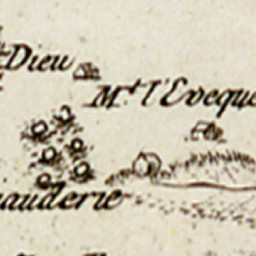 Dieu
M.t l'Eveque
auderie